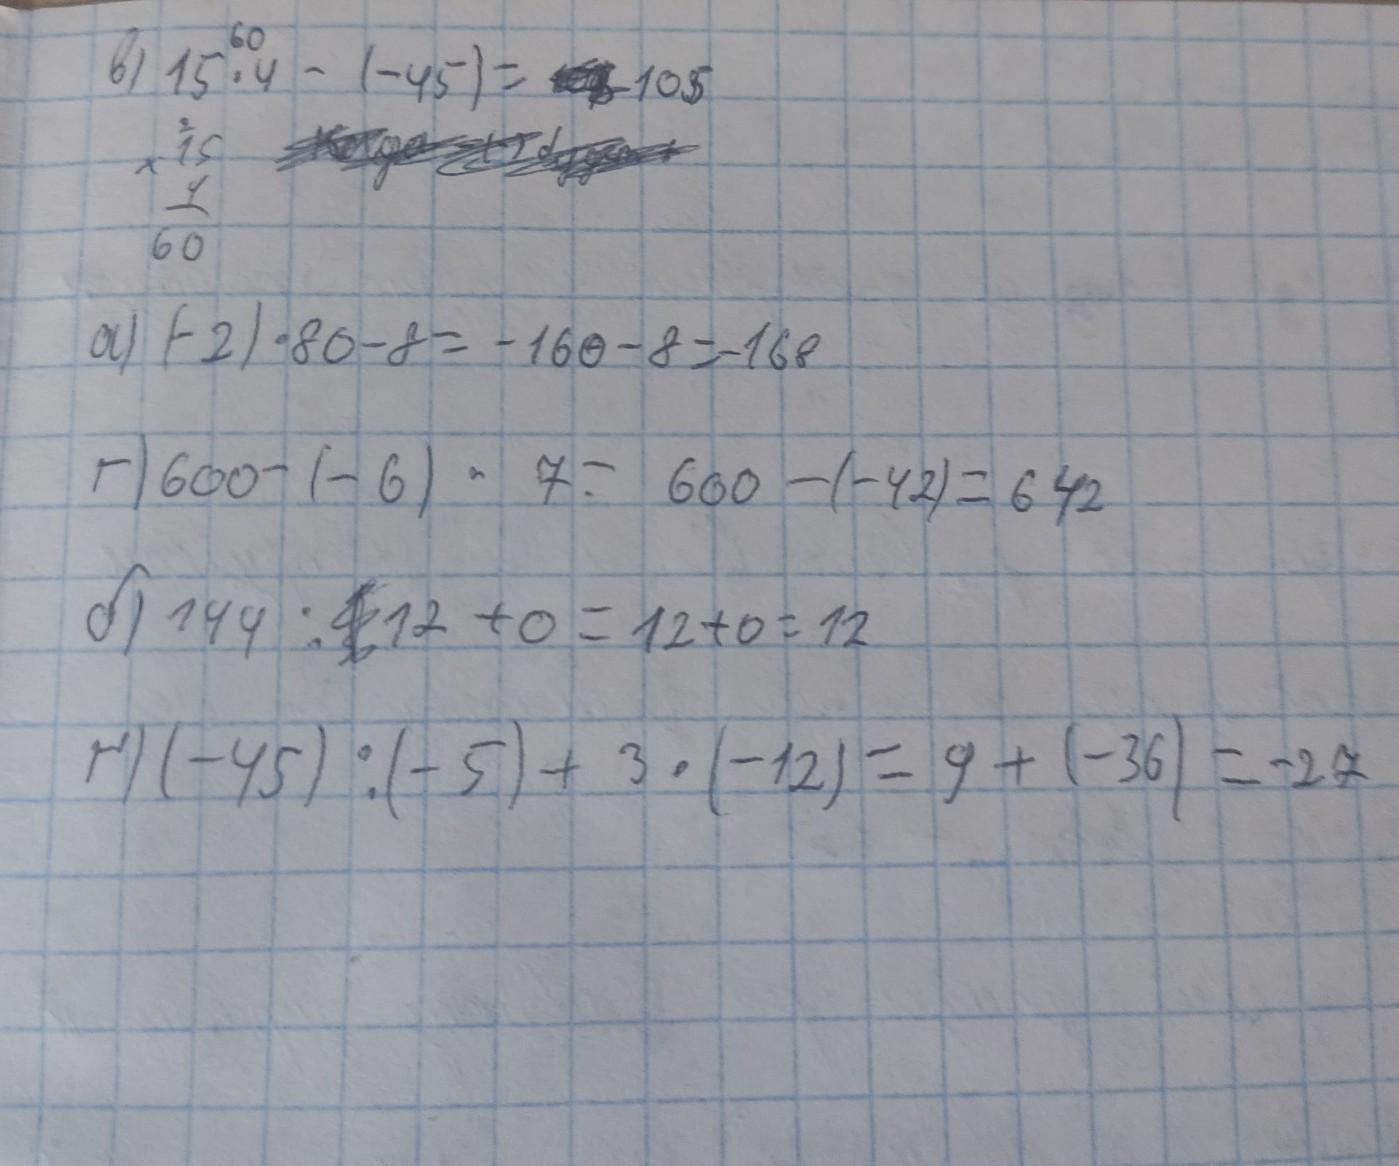 60
в) 15·4 - (-45) = 105
2
× 15
4
60
а) (-2)·80-8 = -160-8=-168
г) 600-(-6) · 7= 600 -(-42)= 642
б) 144 : 12 +0 = 12+0=12
г) (-45) :(-5)+ 3·(-12)= 9+(-36) =-27